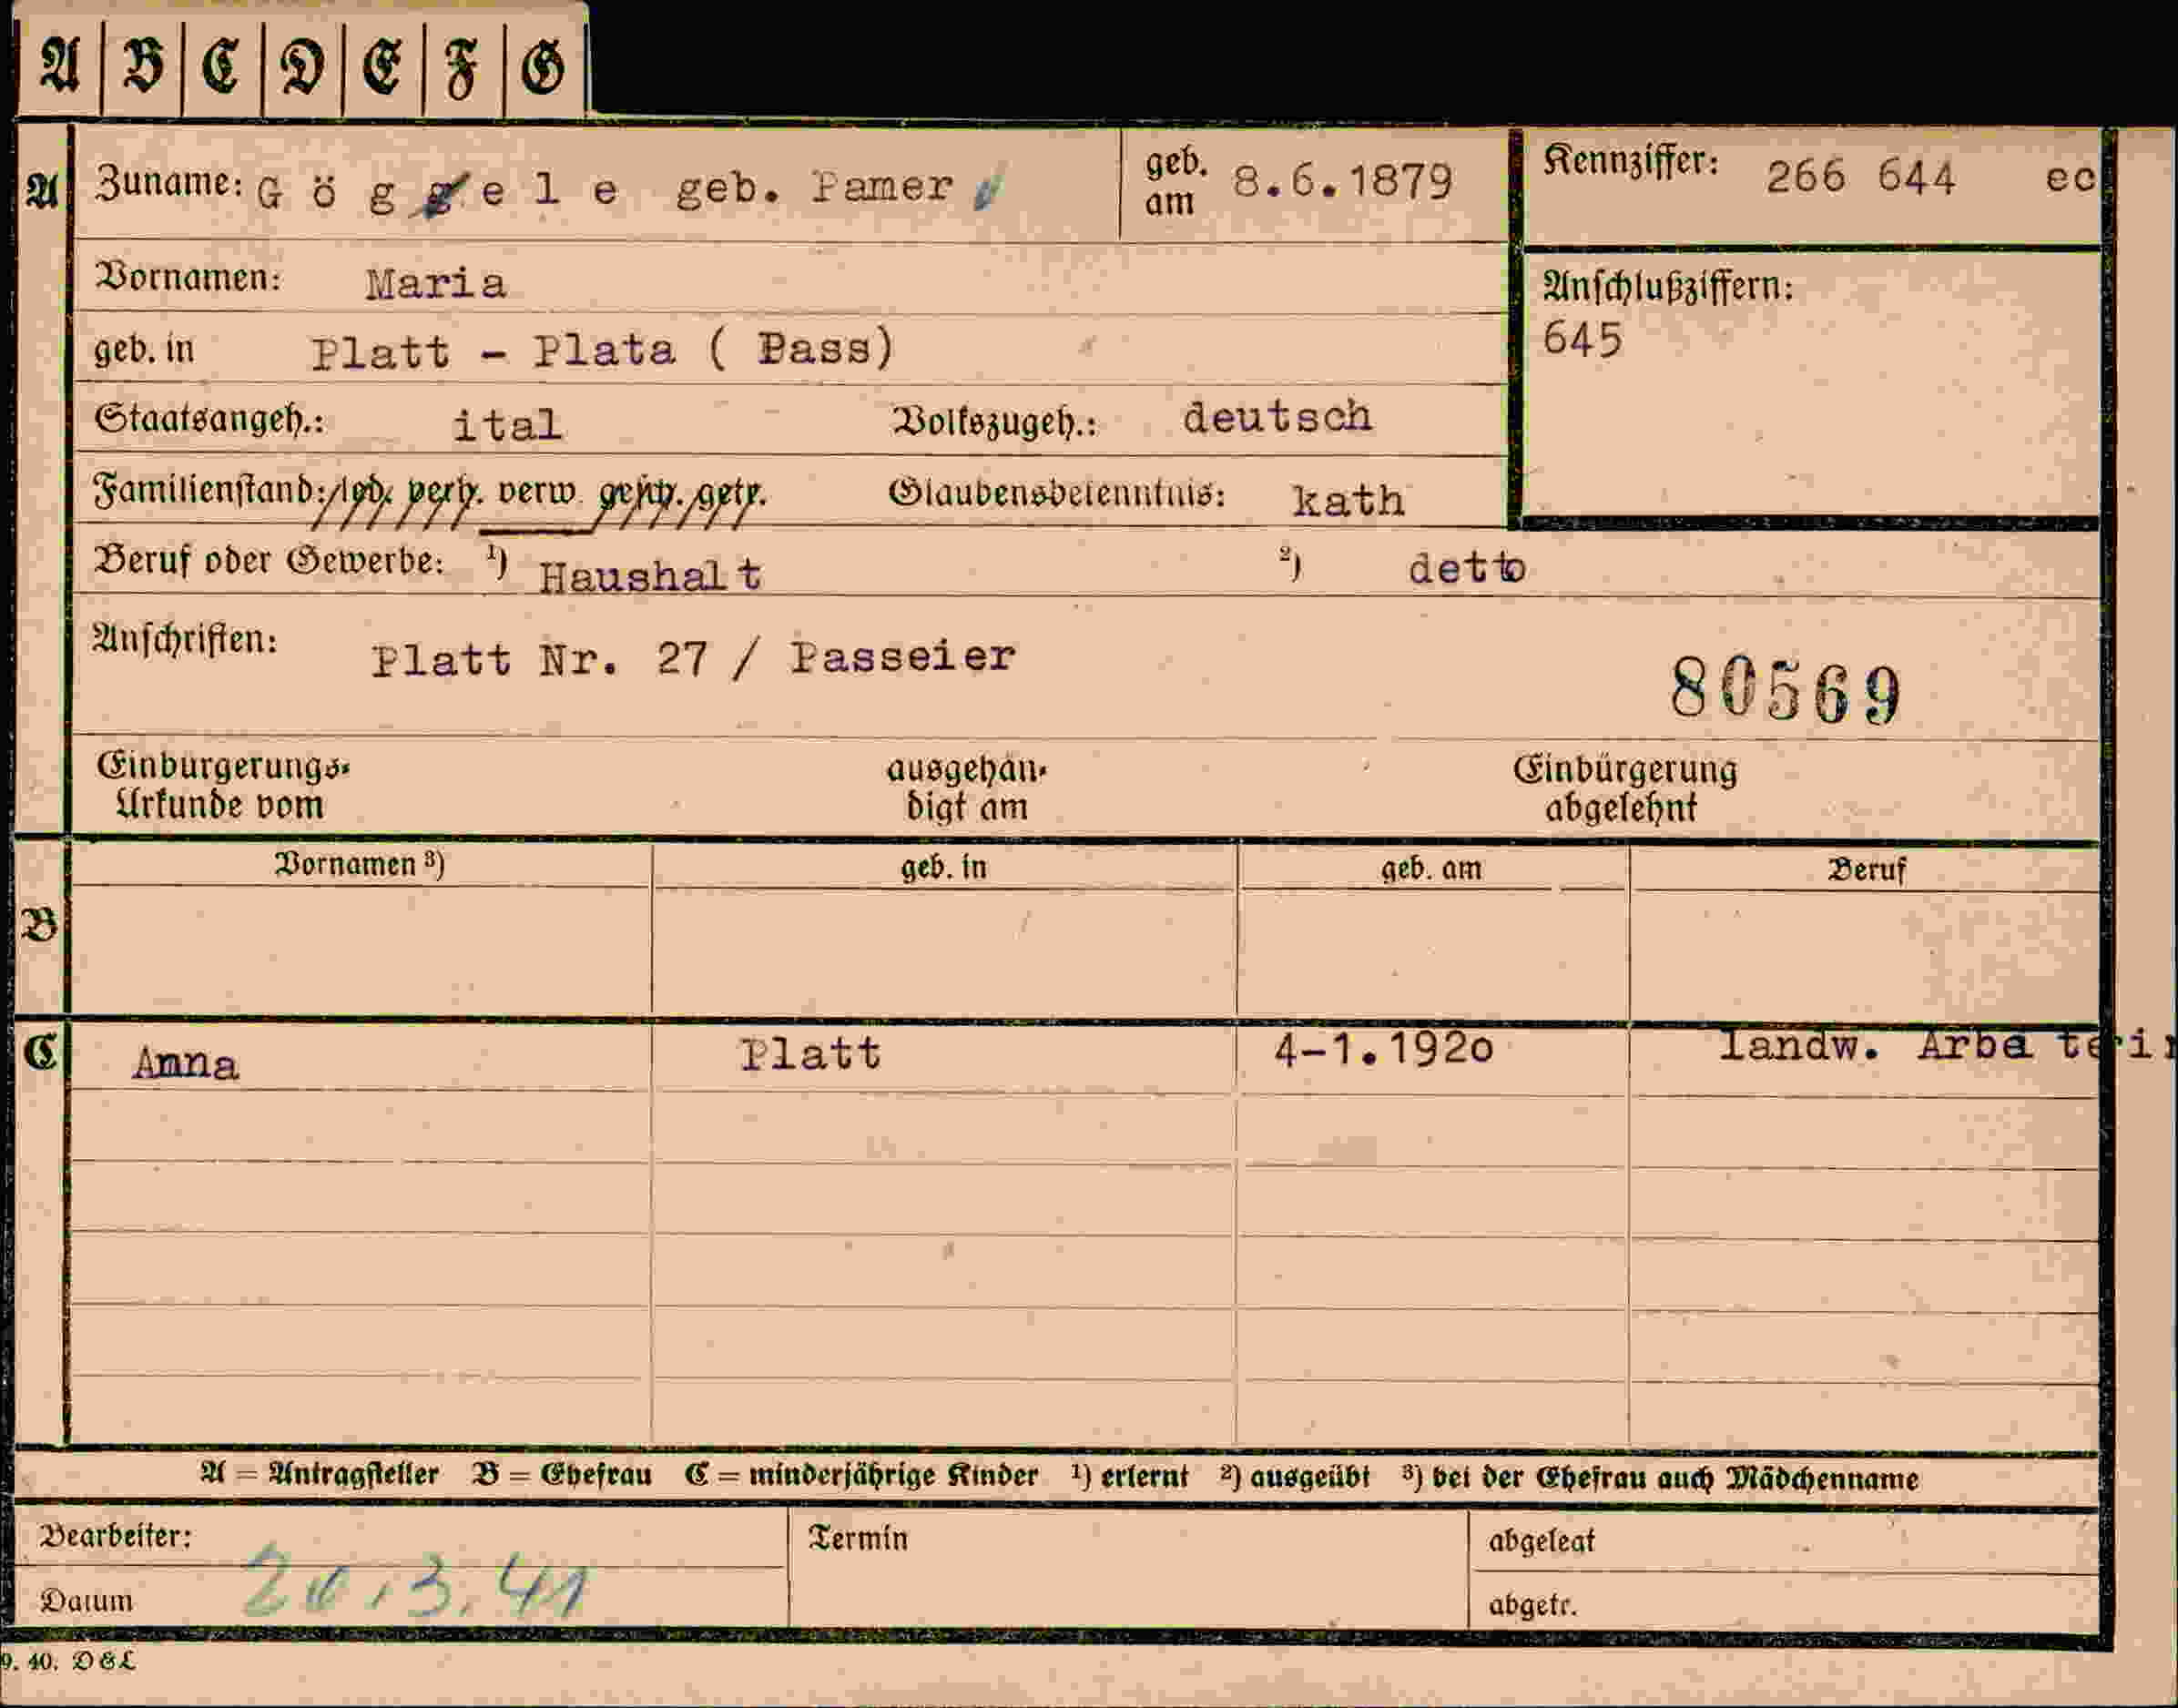 A B C D E F G
A Zuname: G ö g g e l e geb. Pamer geb. am 8.6.1879 Kennziffer: 266 644 ec
Vornamen: Maria
Anschlußziffern:
645
geb. in Platt - Plata ( Pass)
Staatsangeh.: ital Volkszugeh.: deutsch
Familienstand: led. verh. verw. gesch. getr. Glaubensbekenntnis: kath
Beruf oder Gewerbe: 1) Haushalt 2) detto
Anschriften: Platt Nr. 27 / Passeier
80569
Einbürgerungs- ausgehän- Einbürgerung
Urkunde vom digt am abgelehnt
B Vornamen 3) geb. in geb. am Beruf
C Anna Platt 4-1.1920 landw. Arbe teri
A = Antragsteller B = Ehefrau C = minderjährige Kinder 1) erlernt 2) ausgeübt 3) bei der Ehefrau auch Mädchenname
Bearbeiter: Termin abgelegt
Datum 20.3.41 abgetr.
9. 40. D&L